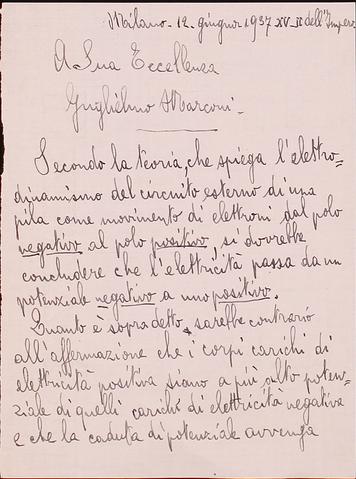 Milano - 12 giugno 1937 XV-II dell'Impero
A Sua Eccellenza
Guglielmo Marconi -
Secondo la teoria, che spiega l'elettro=
dinamismo del circuito esterno di una
pila come movimento di elettroni dal polo
negativo al polo positivo, si dovrebbe
concludere che l'elettricità passa da un
potenziale negativo a uno positivo.
Quanto è sopradetto, sarebbe contrario
all'affermazione che i corpi carichi di
elettricità positiva siano a più alto poten=
ziale di quelli carichi di elettricità negativa
e che la caduta di potenziale avvenga